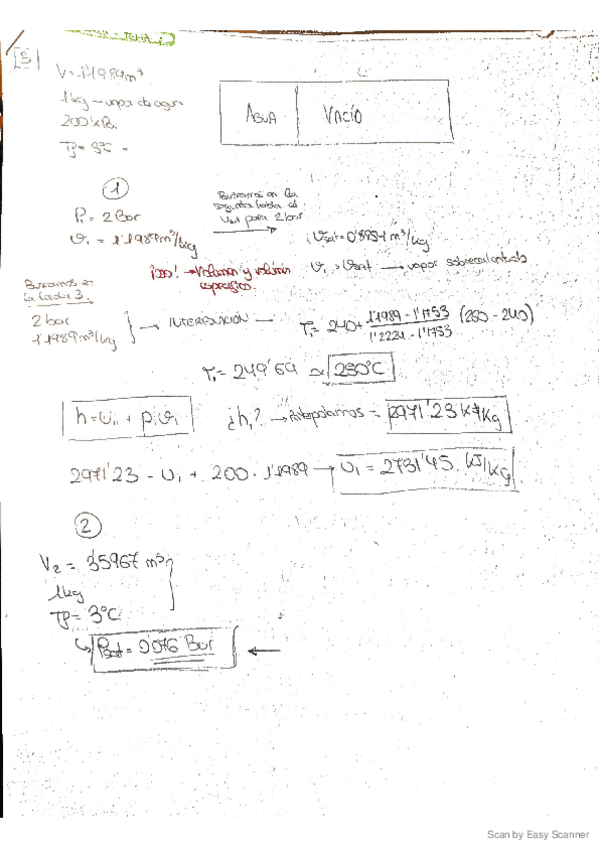 TEMA 1
5
V = 1'1989 m³
1 kg → vapor de agua
200 kPa
Tf = 3°C
AGUA VACÍO
1
P₁ = 2 Bar
v₁ = 1'1989 m³/kg
Buscamos en la segunda tabla el vsat para 2 bar
vsat = 0'8857 m³/kg
¡OJO! → Volumen y volumen específico.
v₁ > vsat → vapor sobrecalentado
Buscamos en la tabla 3.
2 bar
1'1989 m³/kg
→ INTERPOLACIÓN →
T₁ = 240 + (1'1989 - 1'1753) / (1'2224 - 1'1753) (260 - 240)
T₁ = 249'69 ≃ 250°C
h = u₁ + p₁v₁
¿h₁? → Interpolamos = 2971'23 kJ/kg
2971'23 - u₁ + 200 · 1'1989 → u₁ = 2731'45 kJ/kg
2
V₂ = 35967 m³
1kg
Tf = 3°C
↳ Psat = 0'076 Bar ←
Scan by Easy Scanner